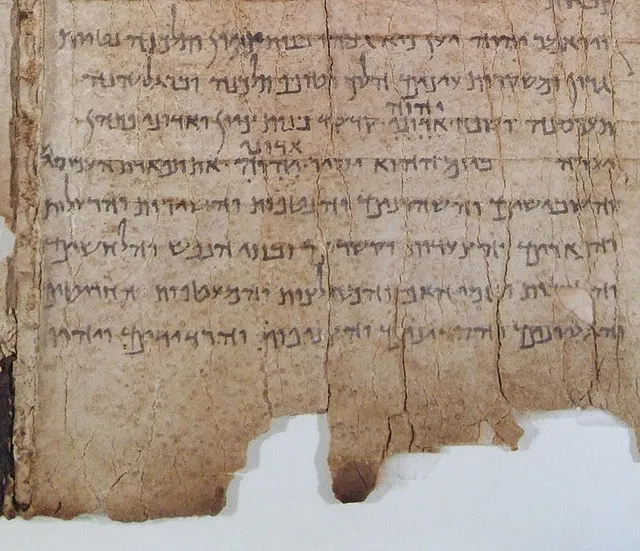 ויואמר יהוה יען כיא גבהו בנות ציון תלכנה נטוות
גרון ומשקרות עיניהן הלוך וטופף תלכנה וברגליהנה
יהוה
תעכסנה ושפח אדוני קדקד בנות ציון ואדוני פתהן
אדוני
יערה ביום ההוא יסיר יהוה את תפארת העכסים
והשבישים והשהרונים והנטפות והשירות והרעלות
והפארים והצעדות והקשרים ובתי הנפש והלחשים
והטבעות ונזמי האף והמחלצות והמעטפות
והגליונים והסדינים והצניפות והרדידים ויהיו